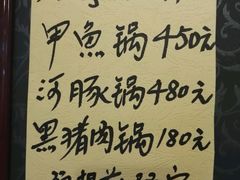 甲魚锅450元
河豚锅480元
黑猪肉锅180元